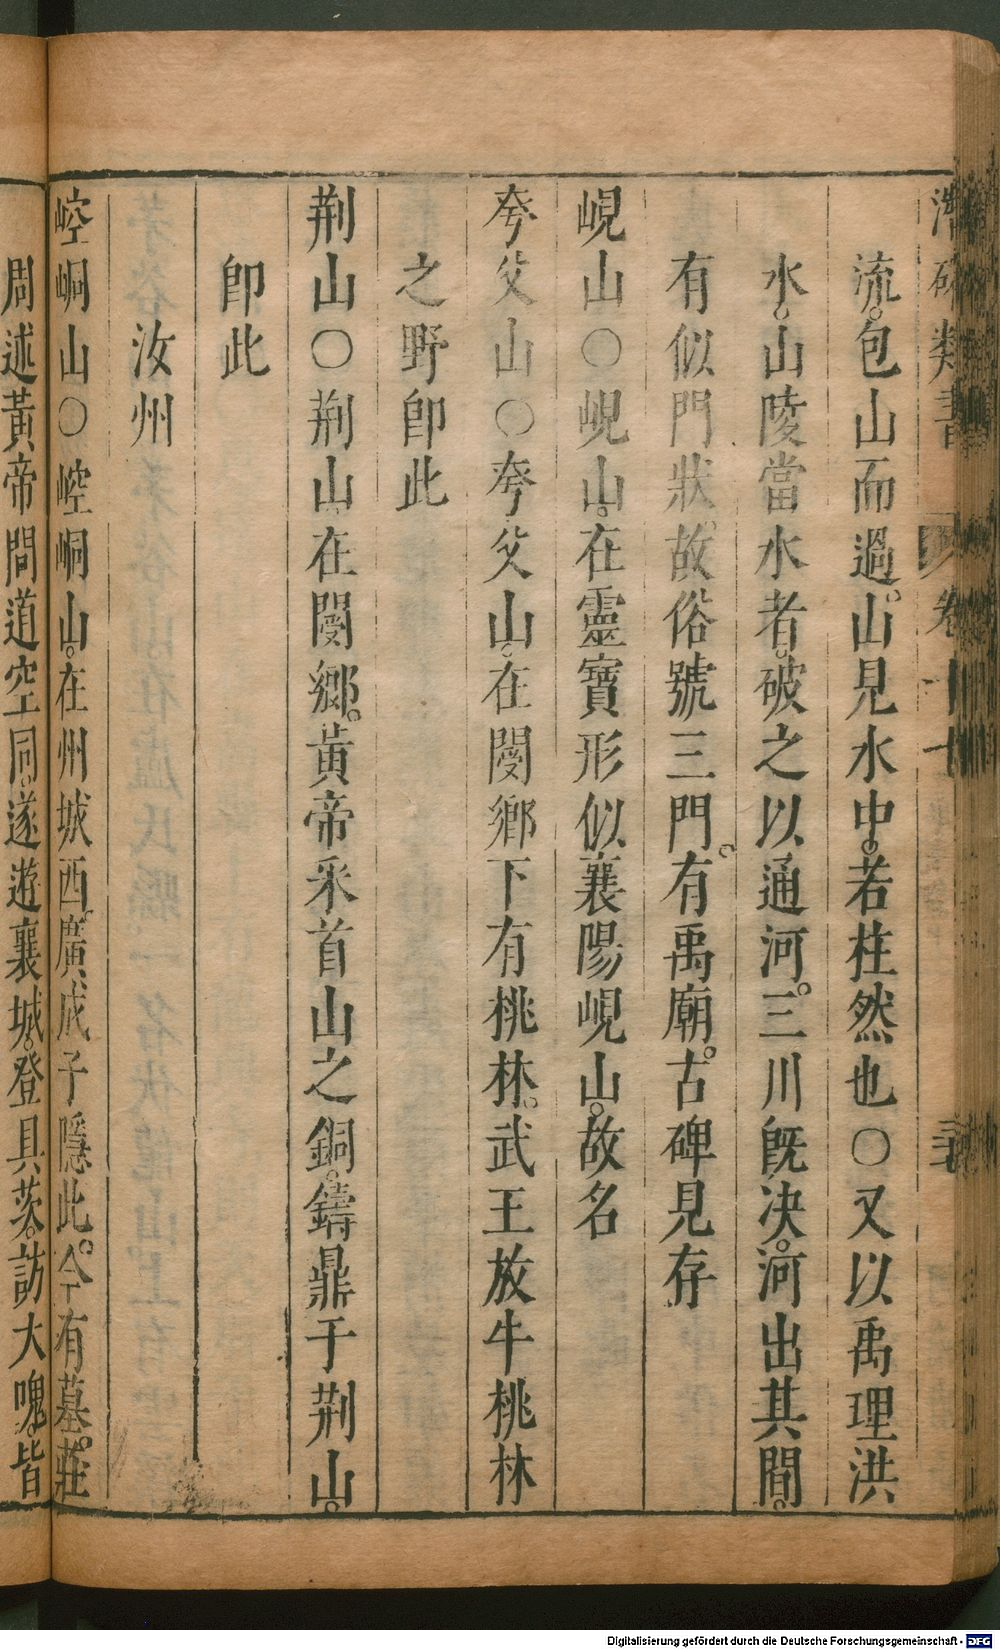 類書 卷十七
流包山而過山見水中若柱然也○又以禹理洪
水山陵當水者破之以通河三川旣决河出其間
有似門狀故俗號三門有禹廟古碑見存
峴山○峴山在靈寶形似襄陽峴山故名
夸父山○夸父山在閿鄉下有桃林武王放牛桃林
之野卽此
荆山○荆山在閿鄉黃帝采首山之銅鑄鼎于荆山
卽此
汝州
崆峒山○崆峒山在州城西廣成子隱此今有墓莊
周述黃帝問道空同遂遊襄城登具茨訪大塊皆
Digitalisierung gefördert durch die Deutsche Forschungsgemeinschaft - DFG